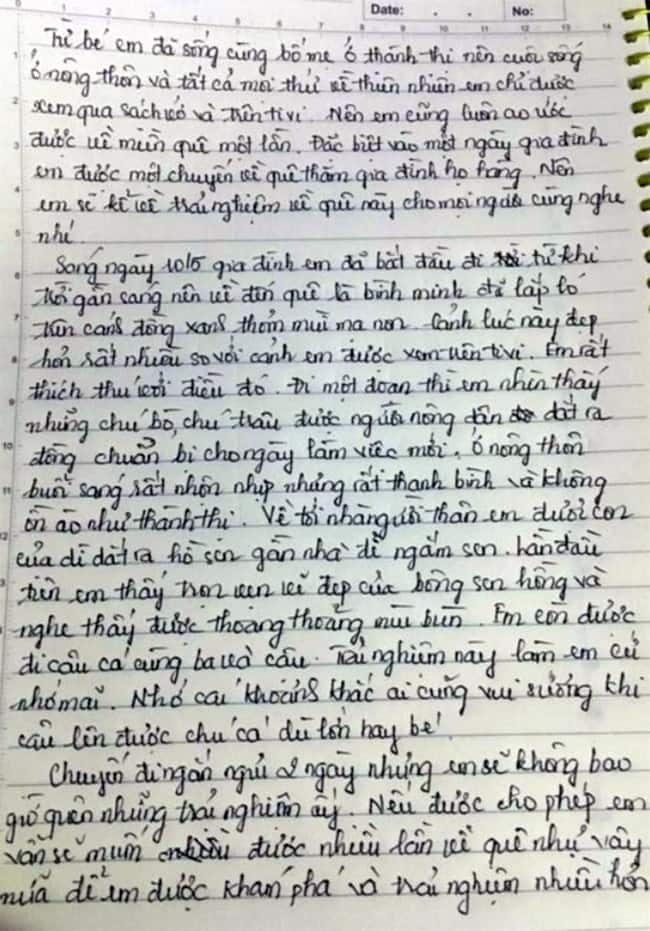 Date: No:
Từ bé em đã sống cùng bố mẹ ở thành thị nên cuộc sống
ở nông thôn và tất cả mọi thứ về thiên nhiên em chỉ được
xem qua sách vở và trên tivi. Nên em cũng luôn ao ước
được về miền quê một lần. Đặc biệt vào một ngày gia đình
em được một chuyến về quê thăm gia đình họ hàng. Nên
em sẽ kể về trải nghiệm về quê này cho mọi người cùng nghe
nhé.
Sáng ngày 10/5 gia đình em đã bắt đầu đi từ khi
trời gần sáng nên về đến quê là bình minh đã lấp ló
trên cánh đồng xanh thơm mùi mạ non. Cảnh lúc này đẹp
hơn rất nhiều so với cảnh em được xem trên tivi. Em rất
thích thú với điều đó. Đi một đoạn thì em nhìn thấy
những chú bò, chú trâu được người nông dân dắt ra
đồng chuẩn bị cho ngày làm việc mới. Ở nông thôn
buổi sáng rất nhộn nhịp nhưng rất thanh bình và không
ồn ào như thành thị. Về tới nhà người thân em được con
của dì dắt ra hồ sen gần nhà để ngắm sen. Lần đầu
tiên em thấy trọn vẹn vẻ đẹp của bông sen hồng và
nghe thấy được thoang thoảng mùi bùn. Em còn được
đi câu cá cùng ba và cậu. Trải nghiệm này làm em cứ
nhớ mãi. Nhớ cái khoảnh khắc ai cũng vui sướng khi
câu lên được chú cá dù lớn hay bé.
Chuyến đi ngắn ngủi 2 ngày nhưng em sẽ không bao
giờ quên những trải nghiệm ấy. Nếu được cho phép em
vẫn sẽ muốn được nhiều lần về quê như vậy
nữa để em được khám phá và trải nghiệm nhiều hơn